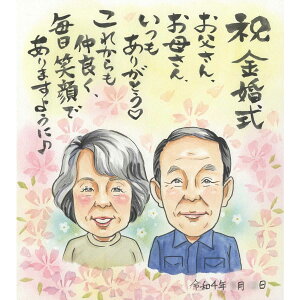 祝 金婚式
お父さん、
お母さん、
いつも
ありがとう♡
これからも
仲良く、
毎日笑顔で
ありますように♪
令和4年 月 日